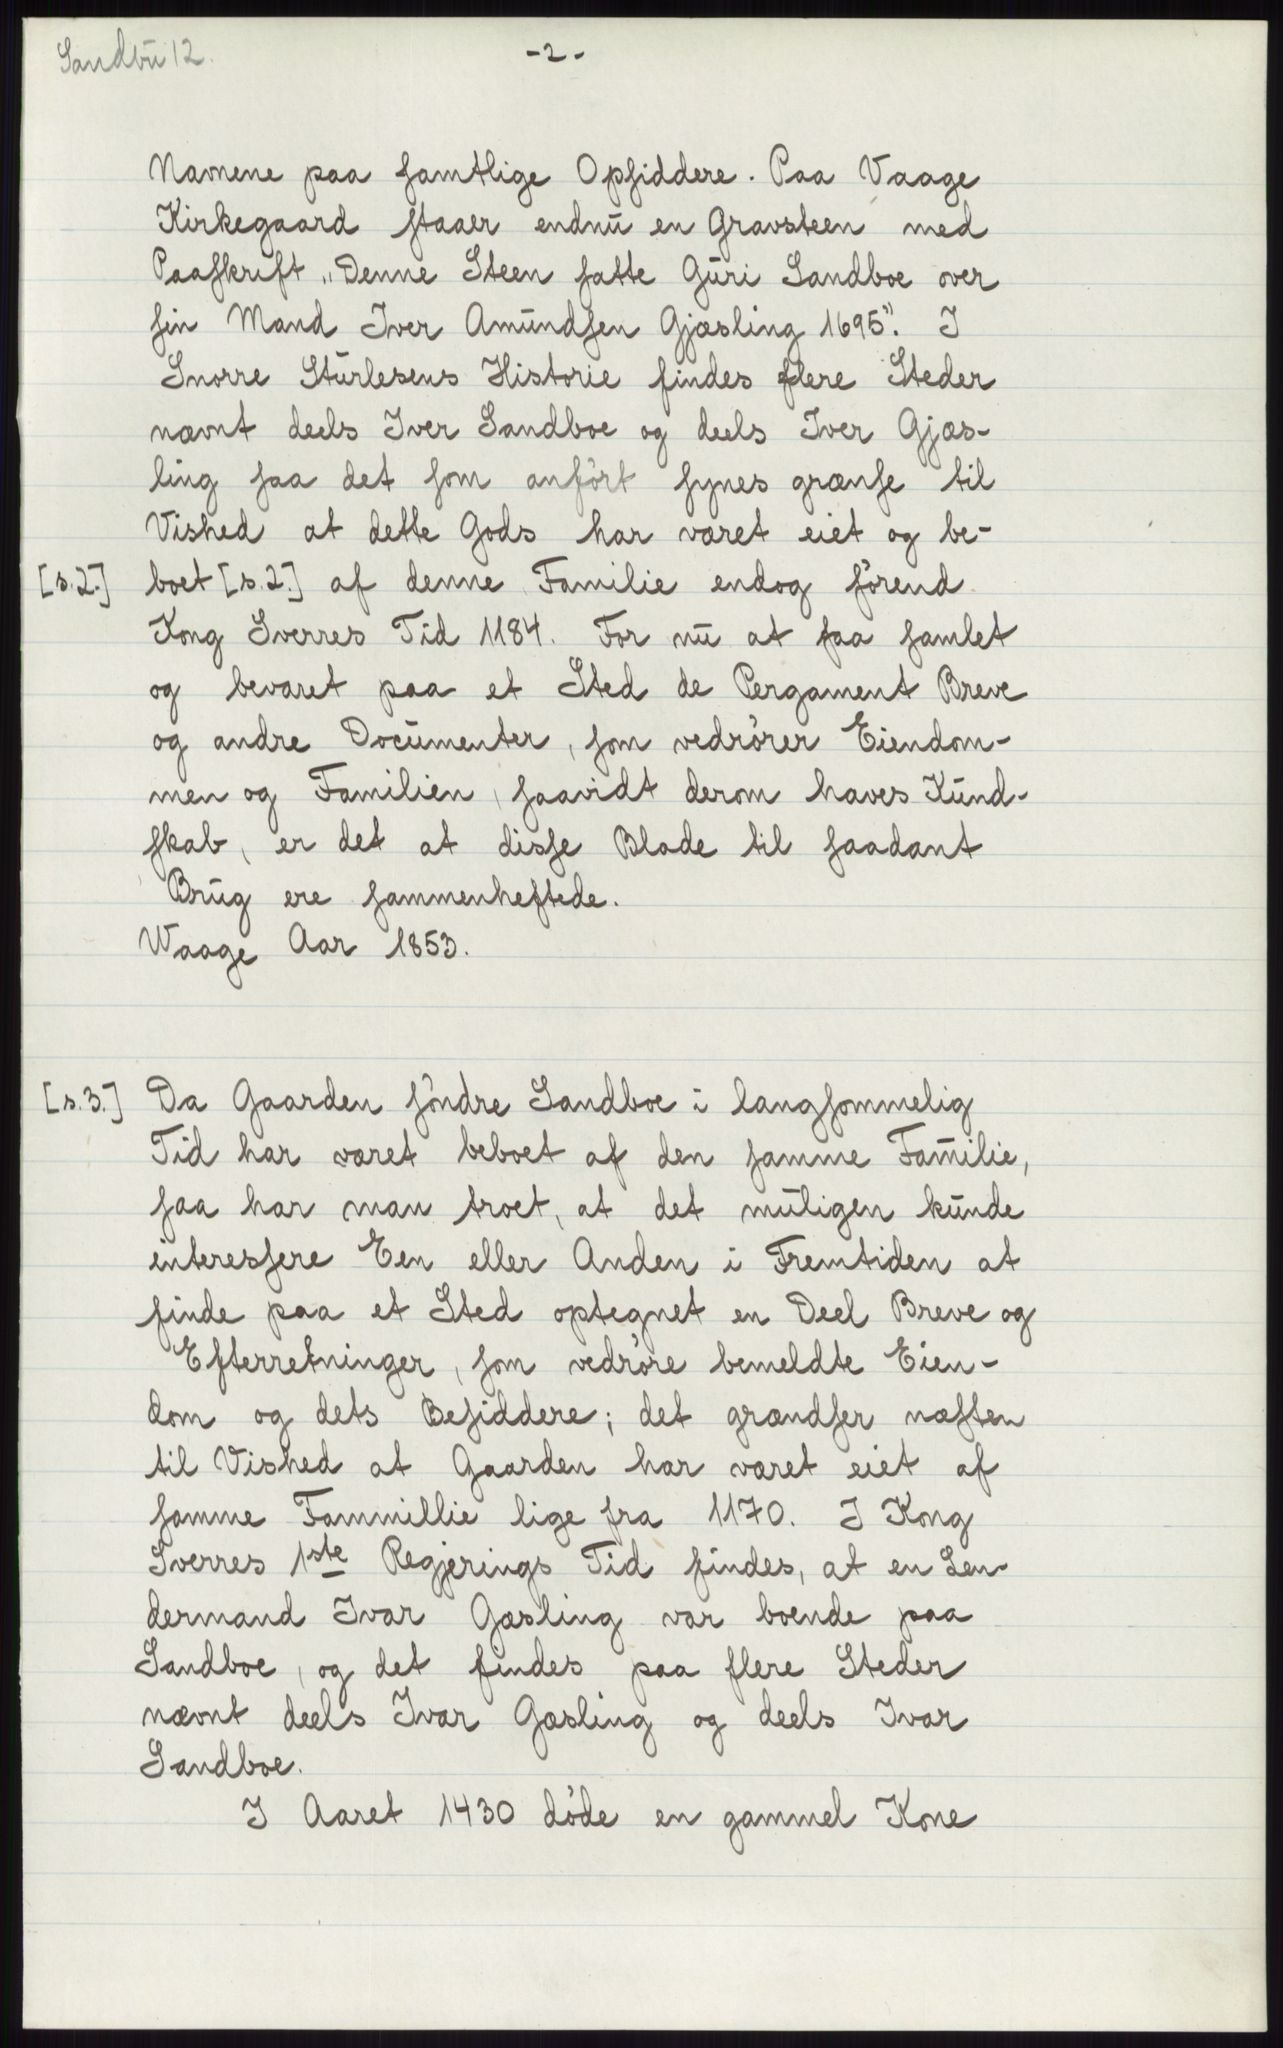 Sandbu 12.
-2-
Navnene paa samtlige Opsiddere. Paa Vaage
Kirkegaard staaer endnu en Gravsteen med
Paaskrift „Denne Steen satte Guri Sandboe over
sin Mand Iver Amundsen Gjæsling 1695". I
Snorre Sturlesens Historie findes flere Steder
nævnt deels Iver Sandboe og deels Iver Gjæs-
ling saa det som anført synes grænse til
Vished at dette Gods har været eiet og be-
[s.2.] boet [s.2.] af denne Familie endog førend
Kong Sverres Tid 1184. For nu at faa samlet
og bevaret paa et Sted de Pergament Breve
og andre Documenter, som vedrører Eiendom-
men og Familien, saavidt derom haves Kund-
skab, er det at disse Blade til saadant
Brug ere sammenheftede.
Waage Aar 1853.
[s.3.] Da Gaarden søndre Sandboe i langsommelig
Tid har været beboet af den samme Familie,
saa har man troet, at det muligen kunde
interessere Een eller Anden i Fremtiden at
finde paa et Sted optegnet en Deel Breve og
Efterretninger, som vedrøre bemeldte Eien-
dom og dets Besiddere; det grændser næsten
til Vished at Gaarden har været eiet af
samme Fammillie lige fra 1170. I Kong
Sverres 1ste Regjerings Tid findes, at en Len-
dermand Ivar Gæsling var boende paa
Sandboe, og det findes paa flere Steder
nævnt deels Ivar Gæsling og deels Ivar
Sandboe.
I Aaret 1430 døde en gammel Kone